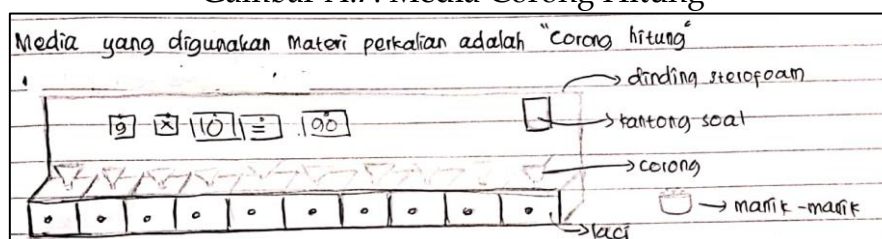 Gambar A.7. Media Corong Hitung
Media yang digunakan Materi perkalian adalah "Corong hitung"
dinding sterofoam
9 × 10 = 90
kantong soal
corong
manik-manik
laci